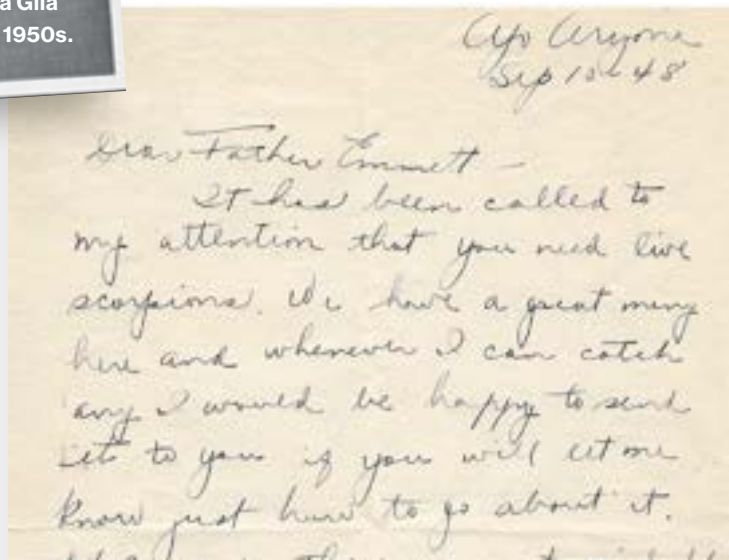 a Gila
1950s.
Ajo Arizona
Sep 10-48
Dear Father Emmett -
It has been called to
my attention that you need live
scorpions. We have a great many
here and whenever I can catch
any I would be happy to send
it to you if you will let me
know just how to go about it.